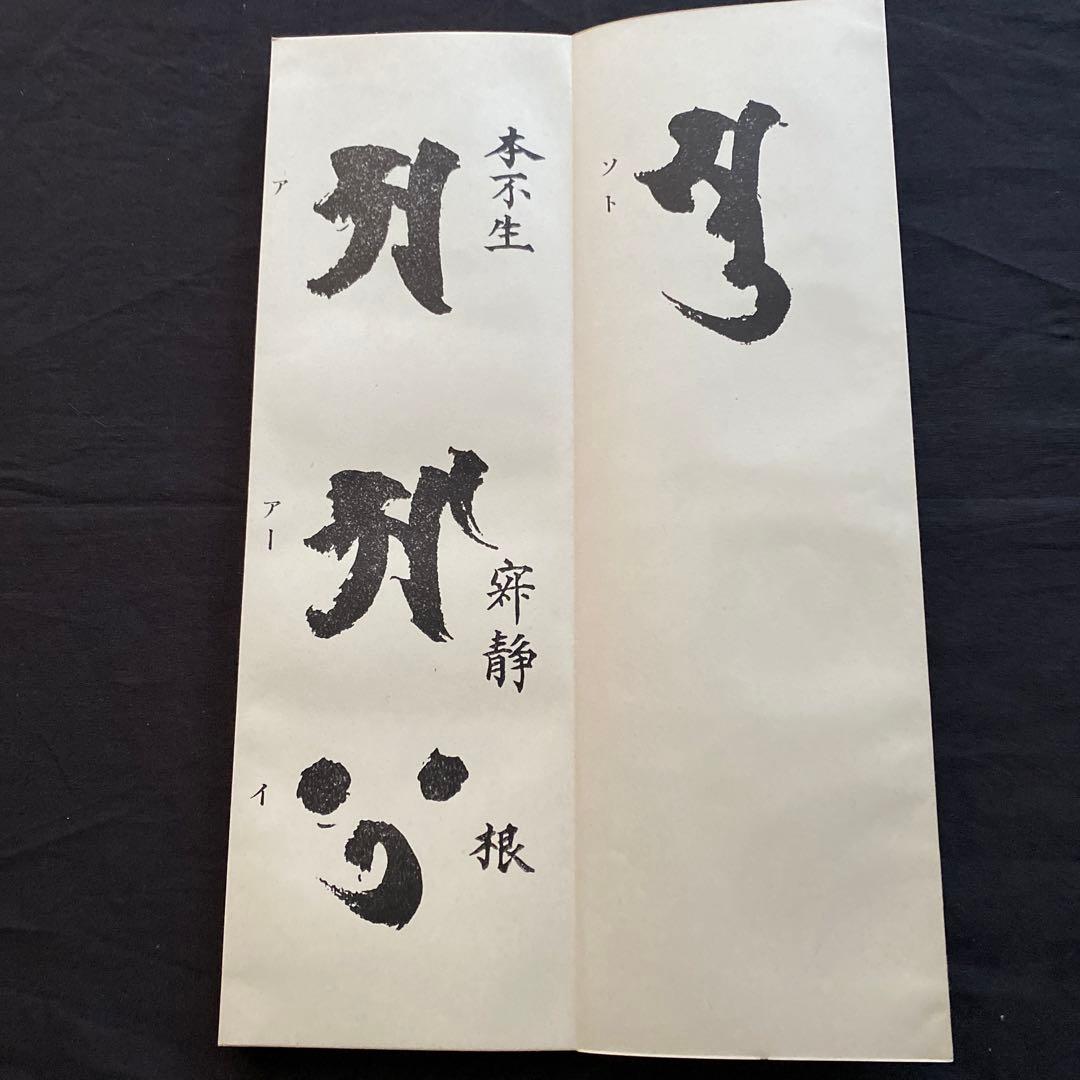 𑖭𑖿𑖝𑖲
ソト
本不生
𑖀
ア
寂静
𑖁
アー
根
𑖂
イ